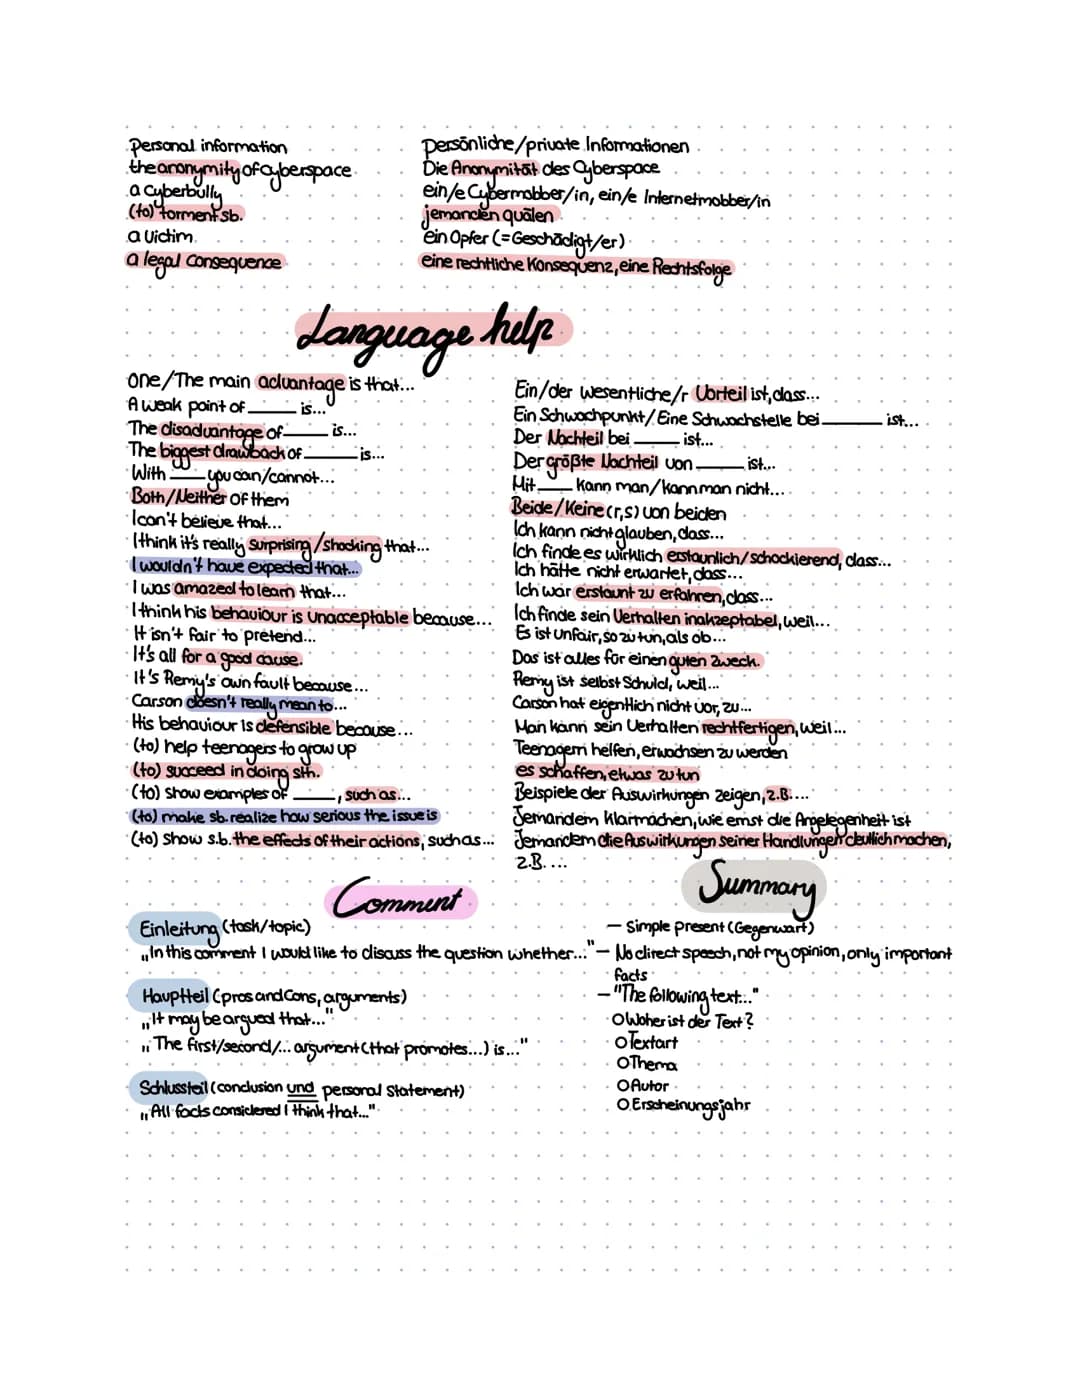 personal information
the anonymity of cyberspace
a cyberbully
(to) torment sb.
a victim
a legal consequence
Persönliche/private Informationen
Die Anonymität des Cyberspace
ein/e Cybermobber/in, ein/e Internetmobber/in
jemanden quälen
ein Opfer (=Geschädigt/er)
eine rechtliche Konsequenz, eine Rechtsfolge
Language help
One/The main advantage is that...
A weak point of ____ is...
The disadvantage of ____ is...
The biggest drawback of ____ is...
With ____ you can/cannot...
Both/Neither of them
I can't believe that...
I think it's really surprising/shocking that...
I wouldn't have expected that...
I was amazed to learn that...
I think his behaviour is unacceptable because...
It isn't fair to pretend...
It's all for a good cause.
It's Remy's own fault because...
Carson doesn't really mean to...
His behaviour is defensible because...
(to) help teenagers to grow up
(to) succeed in doing sth.
(to) show examples of ____, such as...
(to) make sb. realize how serious the issue is
(to) show s.b. the effects of their actions, such as...
Ein/der wesentliche/r Vorteil ist, dass...
Ein Schwachpunkt/Eine Schwachstelle bei ____ ist...
Der Nachteil bei ____ ist...
Der größte Nachteil von ____ ist...
Mit ____ kann man/kann man nicht...
Beide/Keine (r,s) von beiden
Ich kann nicht glauben, dass...
Ich finde es wirklich erstaunlich/schockierend, dass...
Ich hätte nicht erwartet, dass...
Ich war erstaunt zu erfahren, dass...
Ich finde sein Verhalten inakzeptabel, weil...
Es ist unfair, so zu tun, als ob...
Das ist alles für einen guten Zweck.
Remy ist selbst Schuld, weil...
Carson hat eigentlich nicht vor, zu...
Man kann sein Verhalten rechtfertigen, weil...
Teenagern helfen, erwachsen zu werden
es schaffen, etwas zu tun
Beispiele der Auswirkungen zeigen, z.B....
Jemandem klarmachen, wie ernst die Angelegenheit ist
Jemandem die Auswirkungen seiner Handlungen deutlich machen,
z.B. ...
Comment
Einleitung (task/topic)
„In this comment I would like to discuss the question whether..."
Hauptteil (pros and cons, arguments)
„It may be argued that..."
„The first/second/... argument (that promotes...) is..."
Schlussteil (conclusion und personal statement)
„All facts considered I think that..."
Summary
– Simple present (Gegenwart)
– No direct speech, not my opinion, only important
facts
– "The following text..."
O Woher ist der Text?
O Textart
O Thema
O Autor
O Erscheinungsjahr